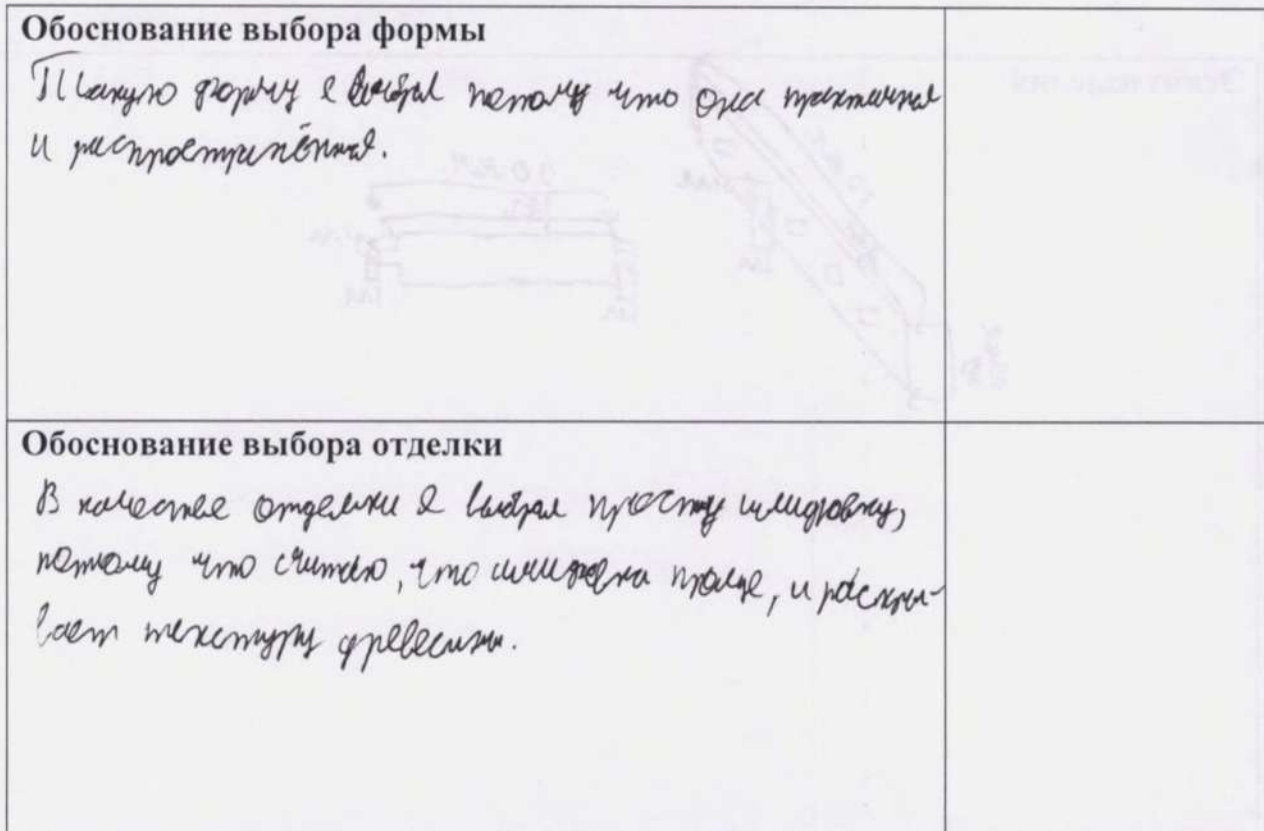 Обоснование выбора формы
Такую форму я выбрал потому что она практичная
и распространённая.
Обоснование выбора отделки
В качестве отделки я выбрал просту шлифовку,
потому что считаю, что шлифовка проще, и раскры-
вает текстуру древесины.